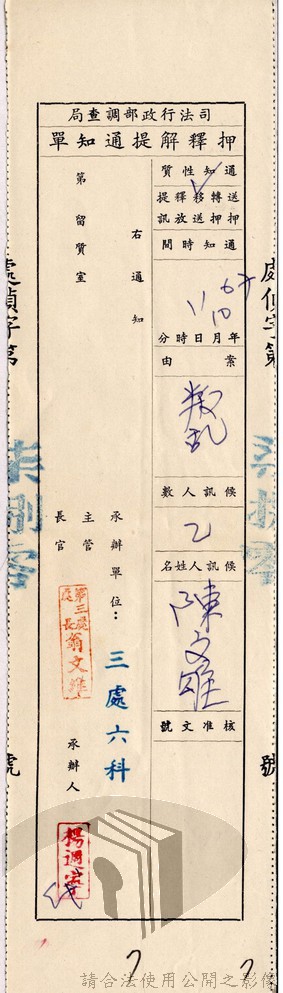 司法行政部調查局
押釋解提通知單
通知性質
送押 轉押 移送 釋放 提訊
通知時間
67年10月11日時分
案由
叛乱
候訊人數
乙
候訊人姓名
陳文雄
核准文號
右通知
第留質室
承辦單位：三處六科
主管
長官
第三處
處長翁文維
承辦人
處偵字第
號
處偵字第
柒捌零
號
請合法使用公開之影像